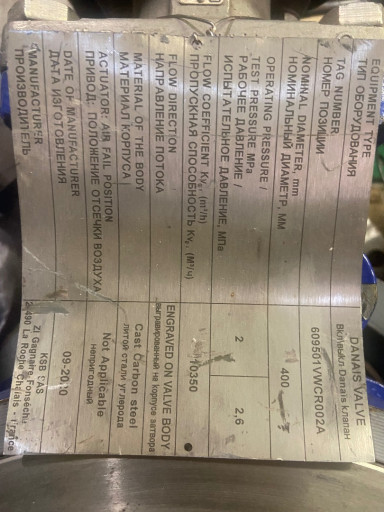 EQUIPMENT TYPE
ТИП ОБОРУДОВАНИЯ
DANAIS VALVE
Вкл/выкл Danais клапан
TAG NUMBER
НОМЕР ПОЗИЦИИ
609501VWCR002A
NOMINAL DIAMETER, mm
НОМИНАЛЬНЫЙ ДИАМЕТР, ММ
400
OPERATING PRESSURE /
TEST PRESSURE MPa
РАБОЧЕЕ ДАВЛЕНИЕ /
ИСПЫТАТЕЛЬНОЕ ДАВЛЕНИЕ, МПа
2
2,6
FLOW COEFFICIENT Kv, (m³/h)
ПРОПУСКНАЯ СПОСОБНОСТЬ Kv, (М³/ч)
10350
FLOW DIRECTION
НАПРАВЛЕНИЕ ПОТОКА
ENGRAVED ON VALVE BODY
выгравированный на корпусе затвора
MATERIAL OF THE BODY
МАТЕРИАЛ КОРПУСА
Cast Carbon steel
литой стали углерода
ACTUATOR: AIR FAIL POSITION
ПРИВОД: ПОЛОЖЕНИЕ ОТСЕЧКИ ВОЗДУХА
No Applicable
непригодный
DATE OF MANUFACTURER
ДАТА ИЗГОТОВЛЕНИЯ
09-2010
MANUFACTURER
ПРОИЗВОДИТЕЛЬ
KSB SAS
ZI Gagnaire Fonsèche
24490 La Roche Chalais France